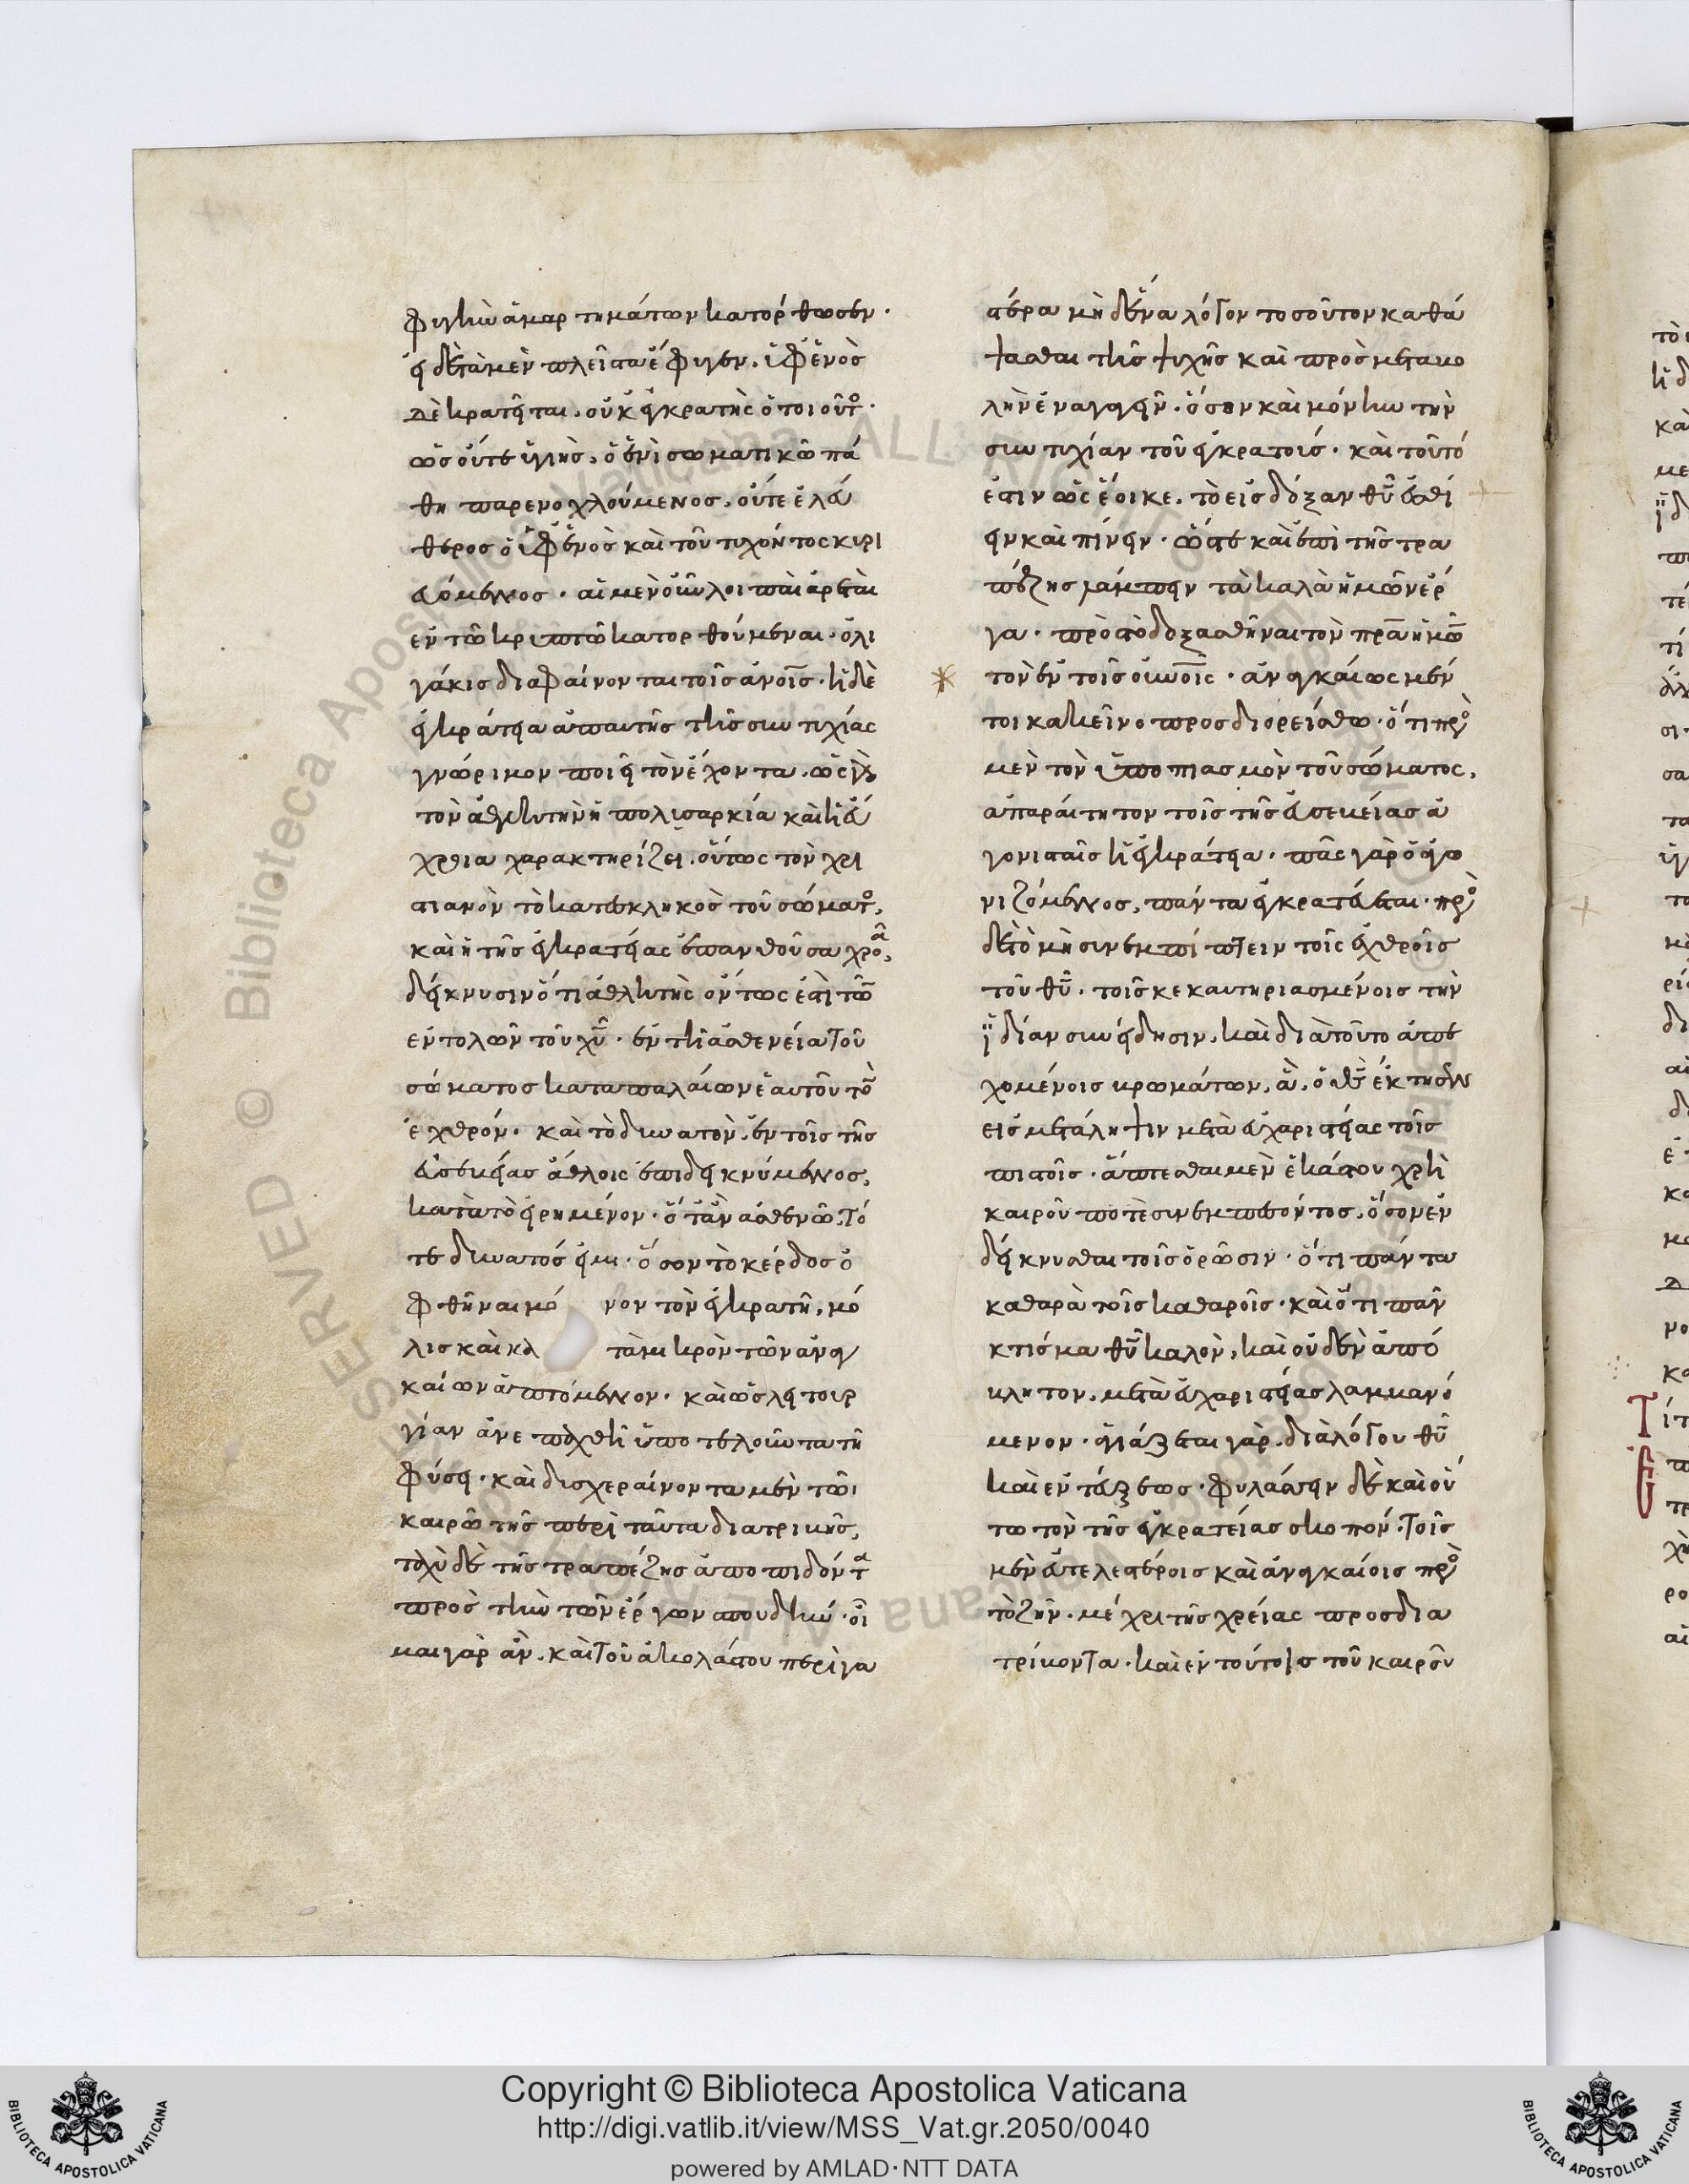 φυγὴν ἁμαρτημάτων κατόρθωσεν·
εἰ δὲ τὰ μὲν πλεῖστα ἔφυγεν, ὑφ' ἑνὸς
δὲ κρατεῖται, οὐκ ἐγκρατὴς ὁ τοιοῦτο·
ὡς οὔτε ὑγιὴς, ὁ ἑνὶ σωματικῶ πά
θη παρενοχλούμενος, οὔτε ἐλεύ
θερος ὁ ὑφ' ἑνὸς καὶ τοῦ τυχόντος κυρι
ευόμενος· αἱ μὲν οὖν λοιπαὶ ἀρεταὶ
ἐν τῶ κρυπτῶ κατορθούμεναι· ὀλι
γάκις διαφαίνονται τοῖς ἀνοις· ἡ δὲ
ἐγκράτεια ἀπ' αὐτῆς τῆς συντυχίας
γνώριμον ποιεῖ τὸν ἔχοντα, ὡς γὰρ
τὸν ἀθλητὴν ἡ πολυσαρκία καὶ ἡ εὔ
χροια χαρακτηρίζει, οὕτως τὸν χρι
στιανὸν τὸ κατεσκληκὸς τοῦ σώματο,
καὶ ἡ τῆς ἐγκρατείας ἐπανθοῦσα χροα,
δείκνυσιν ὅτι ἀθλητὴς ὄντως ἐστὶ τῶν
ἐντολῶν τοῦ χυ· ἐν τῆ ἀσθενεία τοῦ
σώματος καταπαλαίων ἑαυτοῦ τὸν
ἐχθρόν· καὶ τὸ δυνατὸν, ἐν τοῖς τῆς
εὐσεβείας ἄθλοις ἐπιδεικνύμενος,
κατὰ τὸ εἰρημένον· ὅταν ἀσθενῶ, τό
τε δυνατός εἰμι· ὅσον τὸ κέρδος ὀ
φθῆναι μόνον τὸν ἐγκρατῆ, μό
λις καὶ κατὰ μικρὸν τῶν ἀναγ
καίων ἁπτόμενον· καὶ ὡς λειτουρ
γίαν ἀνεπαχθῆ ὑποτελοῦντα τῆ
φύσει· καὶ δυσχεραίνοντα μὲν τῶι
καιρῶ τῆς περὶ ταῦτα διατριβῆς,
ταχὺ δὲ τῆς τραπέζης ἀποπηδόντα
πρὸς τὴν τῶν ἔργων σπουδήν· οἶ
μαι γὰρ ἂν, καὶ τοῦ ἀκολάστου περὶ γα
στέρα μηδένα λόγον τοσοῦτον καθά
ψασθαι τῆς ψυχῆς καὶ πρὸς μεταβο
λὴν ἐναγαγεῖν· ὅσον καὶ μόνην τὴν
συντυχίαν τοῦ ἐγκρατοῦς· καὶ τοῦτό
ἐστιν ὡς ἔοικε, τὸ εἰς δόξαν θυ ἐσθί
ειν καὶ πίνειν· ὥστε καὶ ἐπὶ τῆς τρα
πέζης λάμπειν τὰ καλὰ ἡμῶν ἔρ
γα· πρὸς τὸ δοξασθῆναι τὸν πρα ἡμῶν
τὸν ἐν τοῖς οὐνοις· ἀναγκαίως μέν
τοι κακεῖνο προσδιορείσθω· ὅτι πρὸ
μὲν τὸν ὑποπιασμὸν τοῦ σώματος,
ἀπαράιτητον τοῖς τῆς εὐσεβείας ἀ
γονισταῖς ἡ ἐγκράτεια· πᾶς γὰρ ὁ ἀγω
νιζόμενος, πάντα ἐγκρατεύεται· πρὸ
δὲ τὸ μὴ συνεμπίπτειν τοῖς ἐχθροῖς
τοῦ θυ· τοῖς κεκαυτηριασμένοις τὴν
ἰδίαν συνείδησιν, καὶ διὰ τοῦτο ἀπε
χομένοις βρωμάτων, ἃ, ὁ θς ἔκτησεν
εἰς μετάληψιν μετὰ εὐχαριστείας τοῖς
πιστοῖς· ἅπτεσθαι μὲν ἑκάστου χρὴ
καιροῦ ποτὲ συνεμπεσόντος, ὅσον ἐν
δείκνυσθαι τοῖς ὁρῶσιν· ὅτι πάντα
καθαρὰ τοῖς καθαροῖς· καὶ ὅτι πᾶν
κτίσμα θυ καλὸν, καὶ οὐδὲν ἀπό
βλητον, μετὰ εὐχαριστείας λαμβανό
μενον· ἁγιάζεται γὰρ, διὰ λόγου θυ
καὶ ἐντεύξεως· φυλάσσειν δὲ καὶ οὕ
τω τὸν τῆς ἐγκρατείας σκοπόν· τοῖς
μὲν εὐτελεστέροις καὶ ἀναγκαίοις πρὸ
τὸ ζῆν· μέχρι τῆς χρείας προσδια
τρίβοντα· καὶ ἐν τούτοις τοῦ καιροῦ
Copyright © Biblioteca Apostolica Vaticana
http://digi.vatlib.it/view/MSS_Vat.gr.2050/0040
powered by AMLAD·NTT DATA